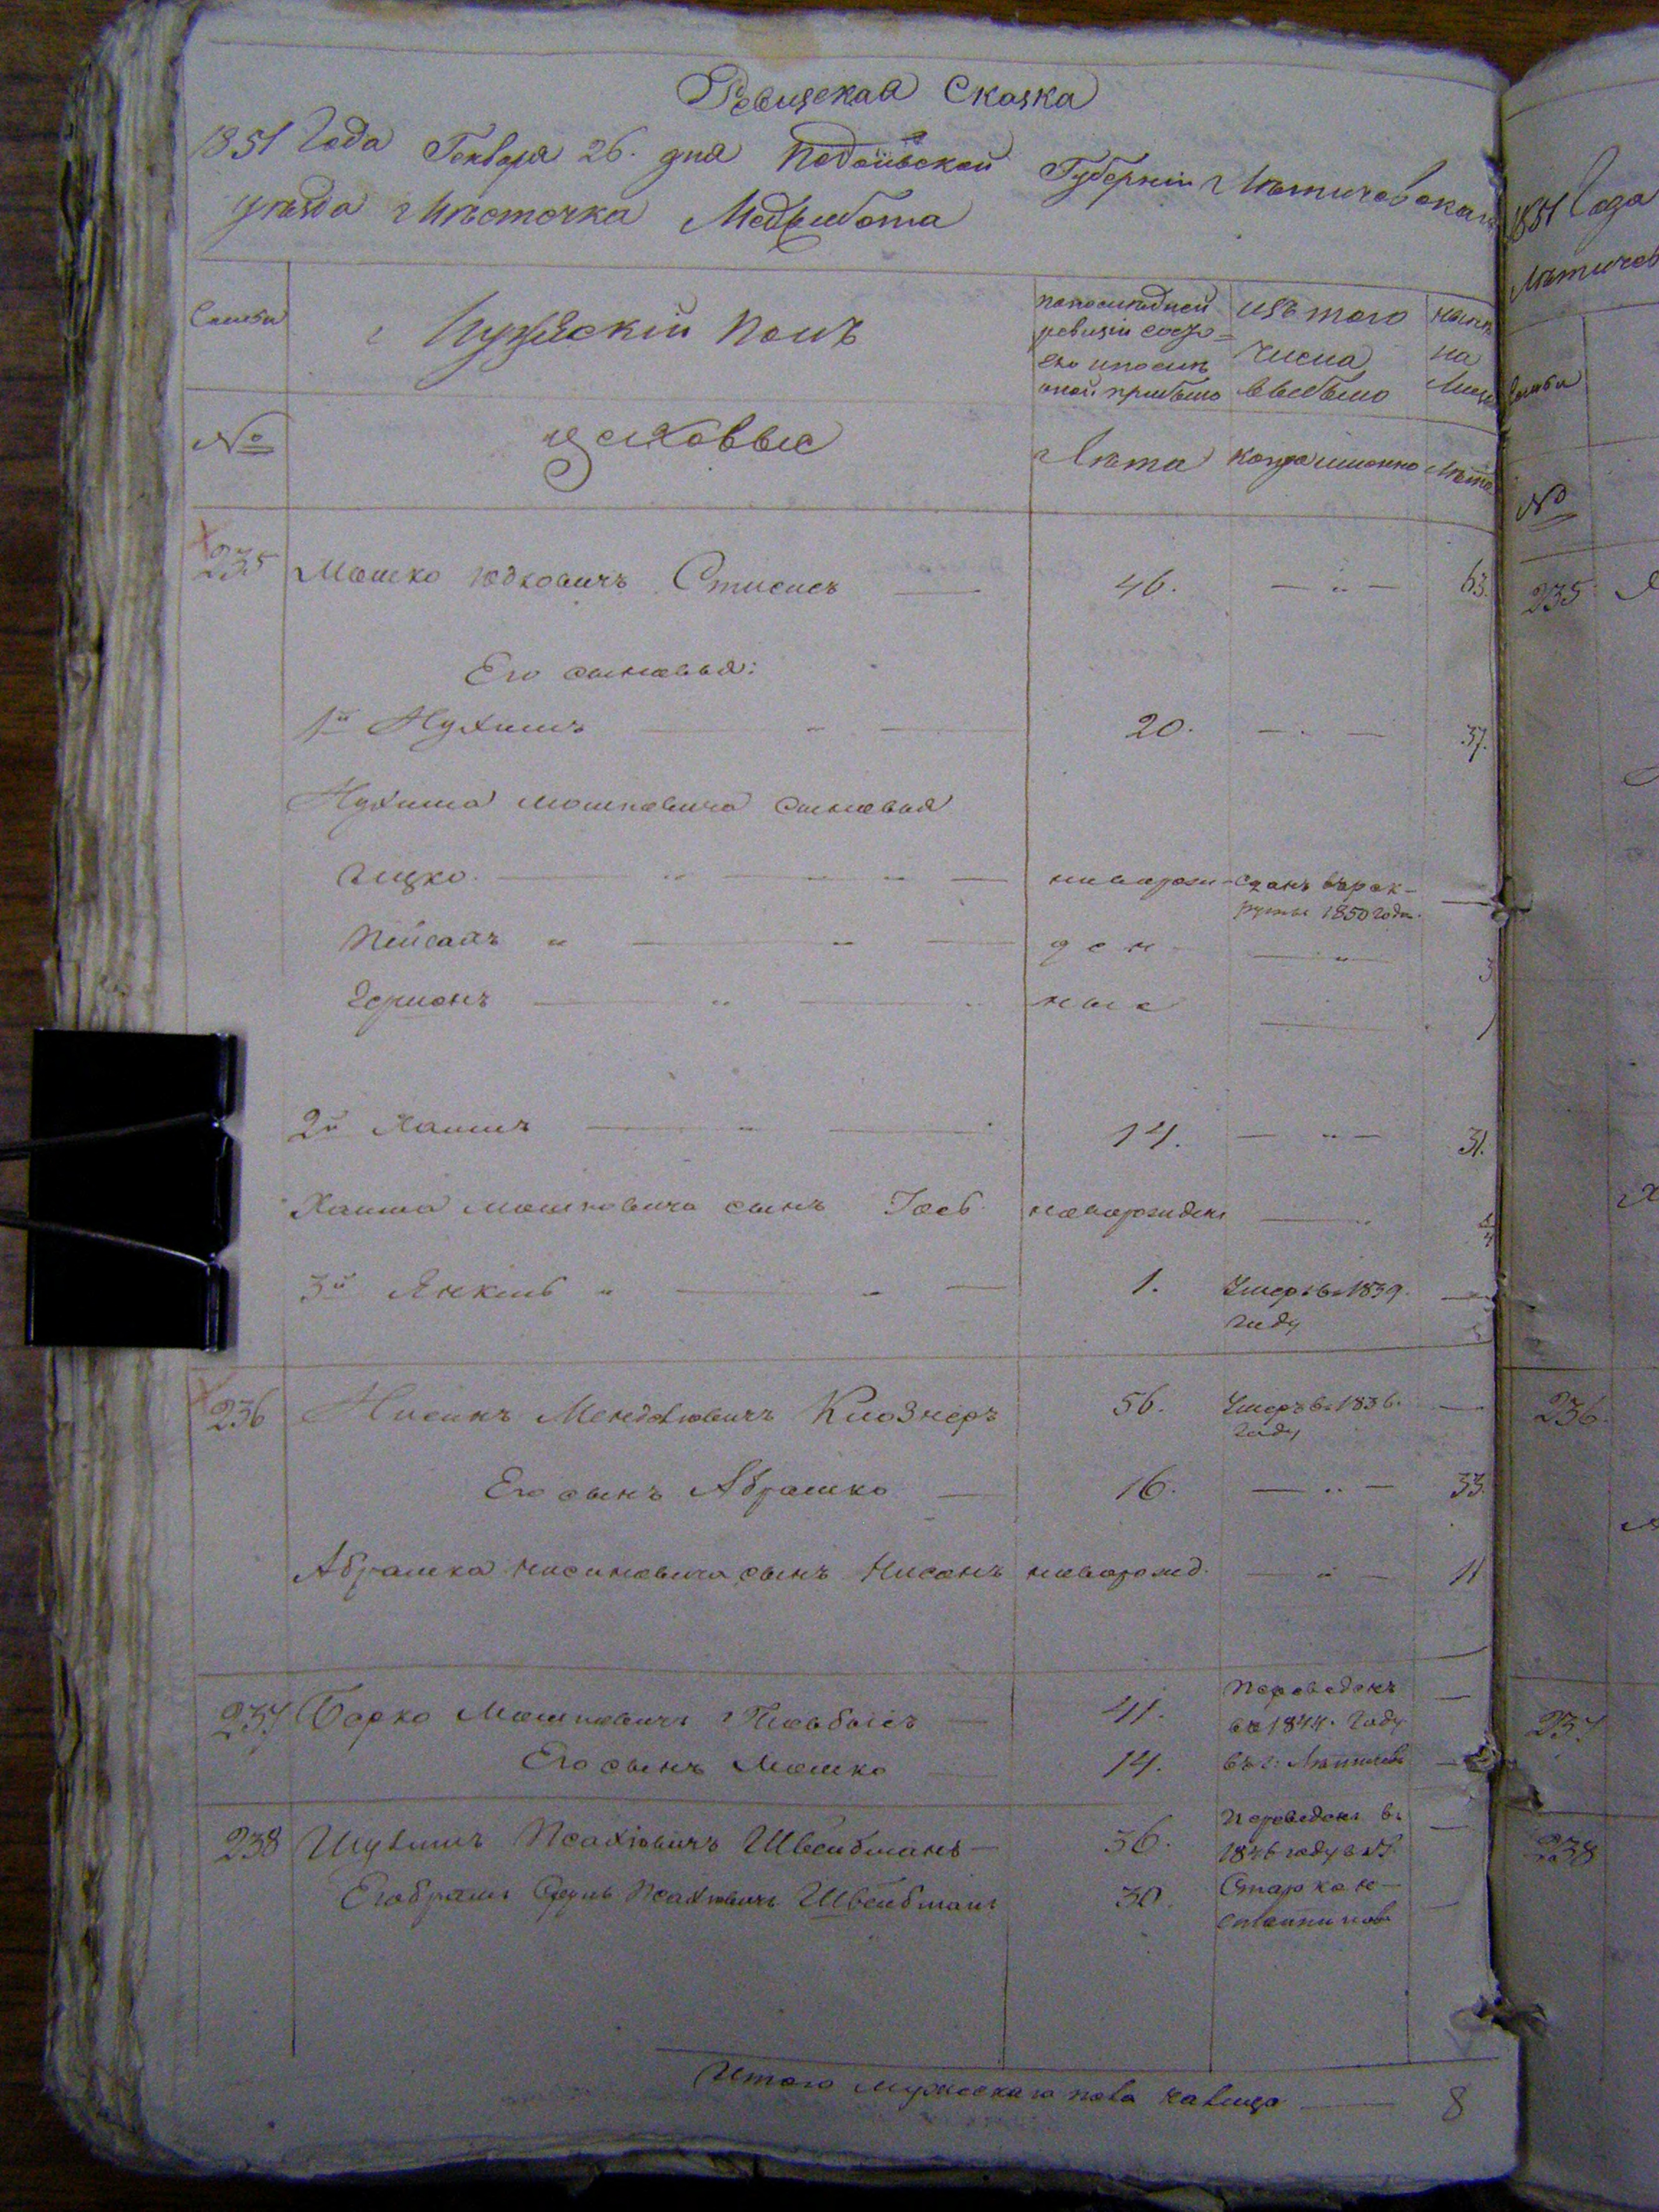 Ревизская Сказка
1851 Года Генваря 26. дня Подольской Губерніи Летичевскаго
уезда Местечка Меджибожа
Семьи
Мужескій Полъ
по последней ревизіи состояло и после оной прибыло
изъ того числа выбыло
ныне на лицо
№
Лета
когда именно
Лета
235 Мошко Юдковичъ 46. — 63.
Его сыновья:
1й Нухимъ 20. — 37.
Нухима Мошковича сыновья
Ицко новорож- Сданъ въ рек-
руты 1850 года. —
Пейсахъ ден — 3
Гершонъ ные — 1
2й Хаимъ 14. — 31.
Хаима Мошковича сынъ Іось новорожден —
3й Янкель 1. Умеръ въ 1839. —
году
236 Нисинъ Менделювичъ Клознеръ 56. Умеръ въ 1836. —
году
Его сынъ Абрамко 16. — 33.
Абрамка Нисиновича сынъ Нисонъ новорожд. — 11
237 Борко Мошковичъ 41. Переведенъ —
въ 1844. Году
Его сынъ Мошко 14. въ г: Летичевъ —
238 Шулимъ Псахіовичъ Швейбманъ 36. Переведены въ —
1846 году въ г.
Его братъ Псахіовичъ Швейбманъ 30. Старокон-
стантиновъ
Итого мужескаго пола налицо — 8
1851 Года
Летичев
Семьи
№
235
236.
237
238